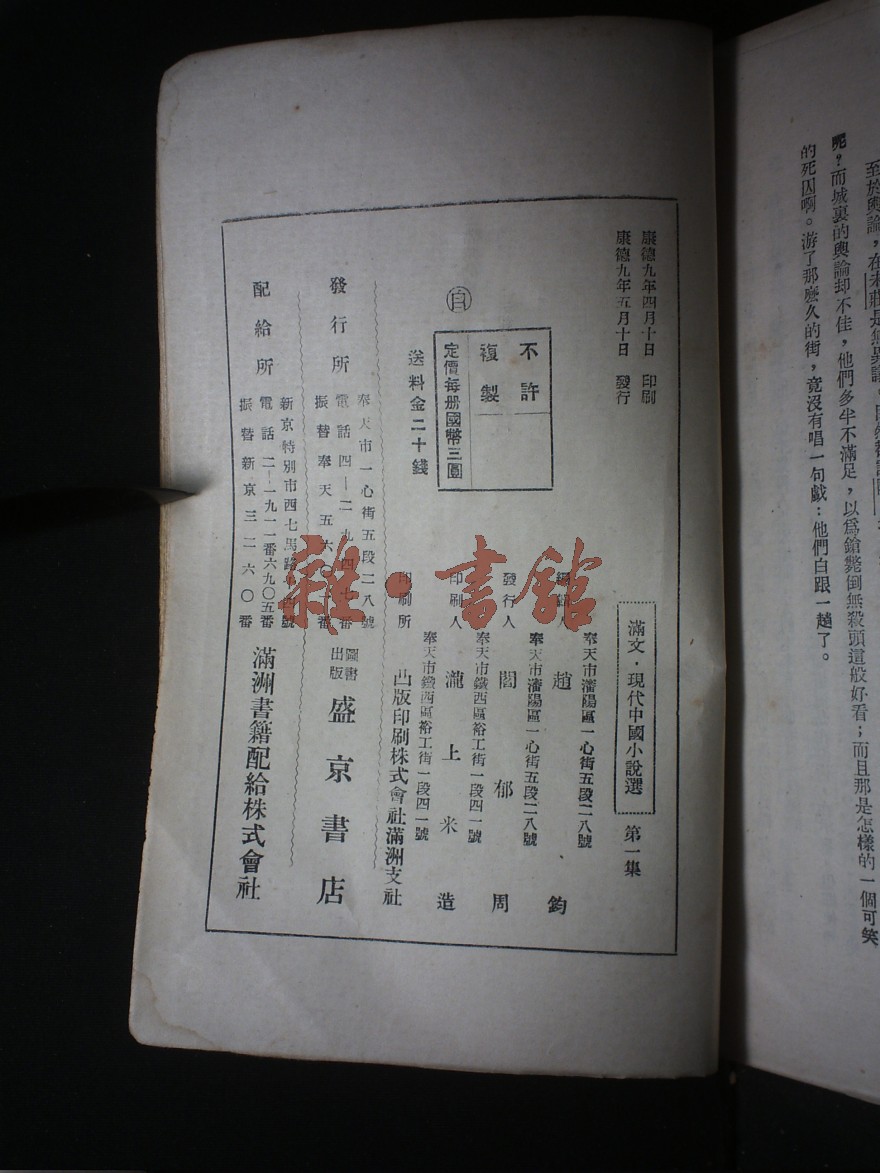 至於輿論，在未莊是無異議，
呢？而城裏的輿論却不佳，他們多半不滿足，以爲鎗斃倒無殺頭這般好看；而且那是怎樣的一個可笑
的死囚啊。游了那麽久的街，竟沒有唱一句戲：他們白跟一趟了。
康德九年四月十日　印刷
康德九年五月十日　發行
滿文・現代中國小說選　第一集
不許
複製
定價每册國幣三圓
送料金二十錢
奉天市瀋陽區一心街五段二八號
編輯人　趙鈞
奉天市瀋陽區一心街五段二八號
發行人　閻郁周
奉天市鐵西區裕工街一段四一號
印刷人　瀧上米造
奉天市鐵西區裕工街一段四一號
印刷所　凸版印刷株式會社滿洲支社
發行所
奉天市一心街五段二八號
電話四—二九四七番
振替奉天五六〇二番
圖書出版　盛京書店
配給所
新京特別市西七馬路十四號
電話二—一九一一番六九〇五番
振替新京三二六〇番
滿洲書籍配給株式會社
雜・書館